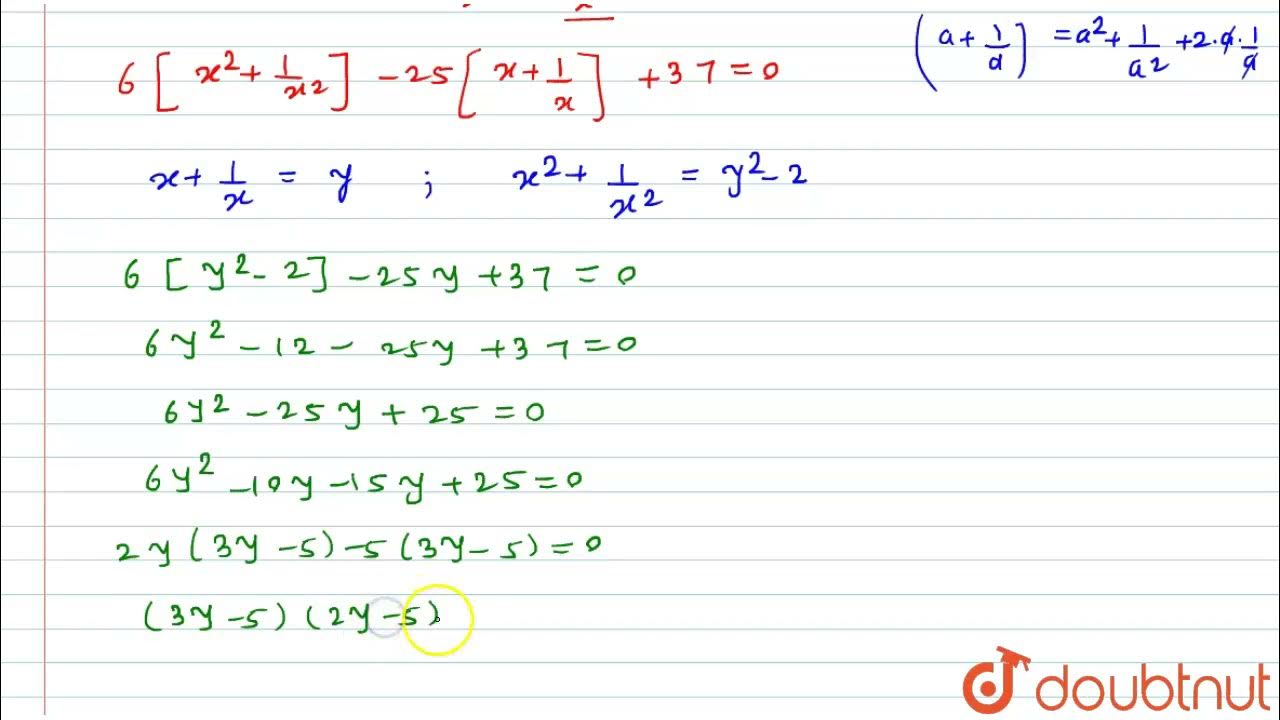 6 [ x² + 1/x² ] - 25 [ x + 1/x ] + 37 = 0
( a + 1/a ) = a² + 1/a² + 2·a·1/a
x + 1/x = y ; x² + 1/x² = y² - 2
6 [ y² - 2 ] - 25y + 37 = 0
6y² - 12 - 25y + 37 = 0
6y² - 25y + 25 = 0
6y² - 10y - 15y + 25 = 0
2y (3y - 5) - 5 (3y - 5) = 0
(3y - 5) (2y - 5)
doubtnut